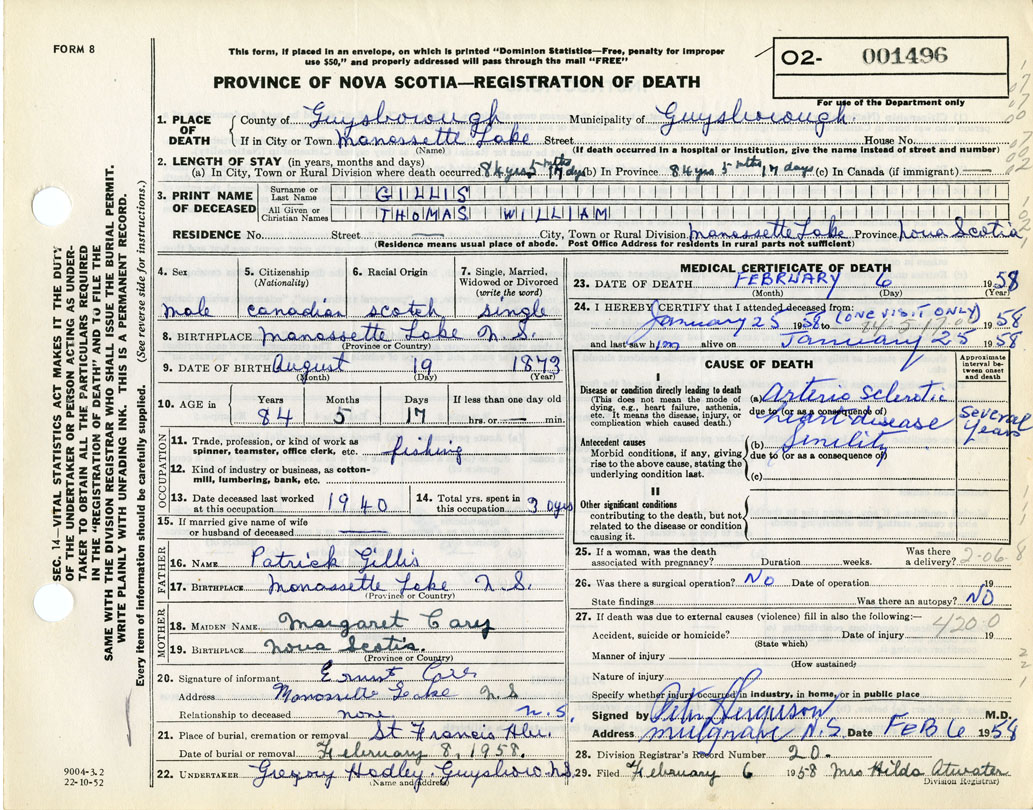 FORM 8
This form, if placed in an envelope, on which is printed "Dominion Statistics—Free, penalty for improper
use $50," and properly addressed will pass through the mail "FREE"
O2- 001496
For use of the Department only
PROVINCE OF NOVA SCOTIA—REGISTRATION OF DEATH
1. PLACE OF DEATH { County of Guysborough Municipality of Guysborough
If in City or Town Manassette Lake Street House No.
(Name) (If death occurred in a hospital or institution, give the name instead of street and number)
2. LENGTH OF STAY (in years, months and days)
(a) In City, Town or Rural Division where death occurred 84 yrs 5 mths 17 days (b) In Province 84 yrs. 5 mths 17 days (c) In Canada (if immigrant)
3. PRINT NAME OF DECEASED
Surname or Last Name GILLIS
All Given or Christian Names THOMAS WILLIAM
RESIDENCE No. Street City, Town or Rural Division Manassette Lake Province Nova Scotia
(Residence means usual place of abode. Post Office Address for residents in rural parts not sufficient)
4. Sex male
5. Citizenship (Nationality) canadian
6. Racial Origin scotch
7. Single, Married, Widowed or Divorced (write the word) single
8. BIRTHPLACE Manassette Lake N.S.
(Province or Country)
9. DATE OF BIRTH August 19 1873
(Month) (Day) (Year)
10. AGE in Years 84 Months 5 Days 17 If less than one day old hrs. or min.
OCCUPATION
11. Trade, profession, or kind of work as spinner, teamster, office clerk, etc. fishing
12. Kind of industry or business, as cotton-mill, lumbering, bank, etc.
13. Date deceased last worked at this occupation 1940
14. Total yrs. spent in this occupation 30 yrs
15. If married give name of wife or husband of deceased
FATHER
16. NAME Patrick Gillis
17. BIRTHPLACE Monassette Lake N.S.
(Province or Country)
MOTHER
18. MAIDEN NAME Margaret Cary
19. BIRTHPLACE Nova Scotia.
(Province or Country)
20. Signature of informant Ernest
Address Monossette Lake N S
Relationship to deceased none N.S.
21. Place of burial, cremation or removal St Francis
Date of burial or removal February 8, 1958.
22. UNDERTAKER Gregory Hadley. Guysboro N.S.
(Name and Address)
MEDICAL CERTIFICATE OF DEATH
23. DATE OF DEATH FEBRUARY 6 1958
(Month) (Day) (Year)
24. I HEREBY CERTIFY that I attended deceased from:
January 25 1958 (ONE VISIT ONLY) 1958
and last saw him alive on January 25 1958
CAUSE OF DEATH
Approximate interval between onset and death
I
Disease or condition directly leading to death
(This does not mean the mode of dying, e.g., heart failure, asthenia, etc. It means the disease, injury, or complication which caused death.)
(a) Arterio sclerotic
due to (or as a consequence of)
heart disease Several Years
Antecedent causes
Morbid conditions, if any, giving rise to the above cause, stating the underlying condition last.
(b) Senility
due to (or as a consequence of)
(c)
II
Other significant conditions
contributing to the death, but not related to the disease or condition causing it.
25. If a woman, was the death associated with pregnancy? Duration weeks. Was there a delivery? 2-06.8
26. Was there a surgical operation? No Date of operation 19
State findings Was there an autopsy? NO
27. If death was due to external causes (violence) fill in also the following:—
420-0
Accident, suicide or homicide? Date of injury 19
(State which)
Manner of injury
(How sustained)
Nature of injury
Specify whether injury occurred in industry, in home, or in public place
Signed by Ferguson M.D.
Address Mulgrave N.S. Date FEB 6 1958
28. Division Registrar's Record Number 20.
29. Filed February 6 1958 Mrs Hilda Atwater
Division Registrar)
SEC. 14—VITAL STATISTICS ACT MAKES IT THE DUTY
OF THE UNDERTAKER OR PERSON ACTING AS UNDER-
TAKER TO OBTAIN ALL THE PARTICULARS REQUIRED
IN THE "REGISTRATION OF DEATH" AND TO FILE THE
SAME WITH THE DIVISION REGISTRAR WHO SHALL ISSUE THE BURIAL PERMIT.
WRITE PLAINLY WITH UNFADING INK. THIS IS A PERMANENT RECORD.
Every item of information should be carefully supplied. (See reverse side for instructions.)
9004-3.2
22-10-52